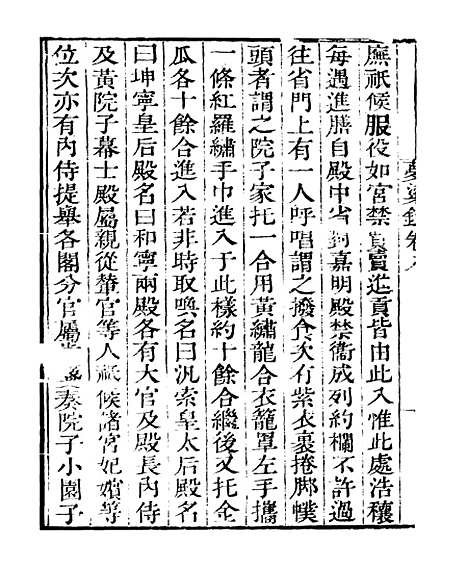 夢粱錄卷八
廡祇候服役如宮禁買賣進貢皆由此入惟此處浩穰
每遇進膳自殿中省對嘉明殿禁衛成列約欄不許過
往省門上有一人呼唱謂之撥食次有紫衣裹捲脚幞
頭者謂之院子家托一合用黃繡龍合衣籠罩左手攜
一條紅羅繡手巾進入于此樣約十餘合繼後又托金
瓜各十餘合進入若非時取喚名曰汎索皇太后殿名
曰坤寧皇后殿名曰和寧兩殿各有大官及殿長內侍
及黃院子幕士殿屬親從輦官等人祇候諸宮妃嬪等
位次亦有內侍提舉各閣分官屬奏院子小園子